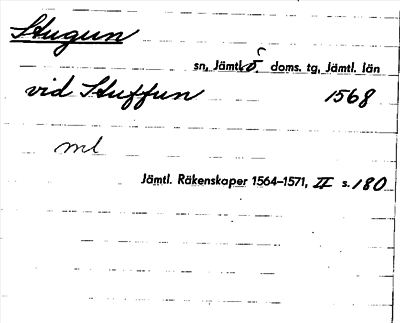 Stugun
sn, Jämtl. ö. doms. tg, Jämtl. län
vid Stuffun 1568
ml
Jämtl. Räkenskaper 1564–1571, II s. 180